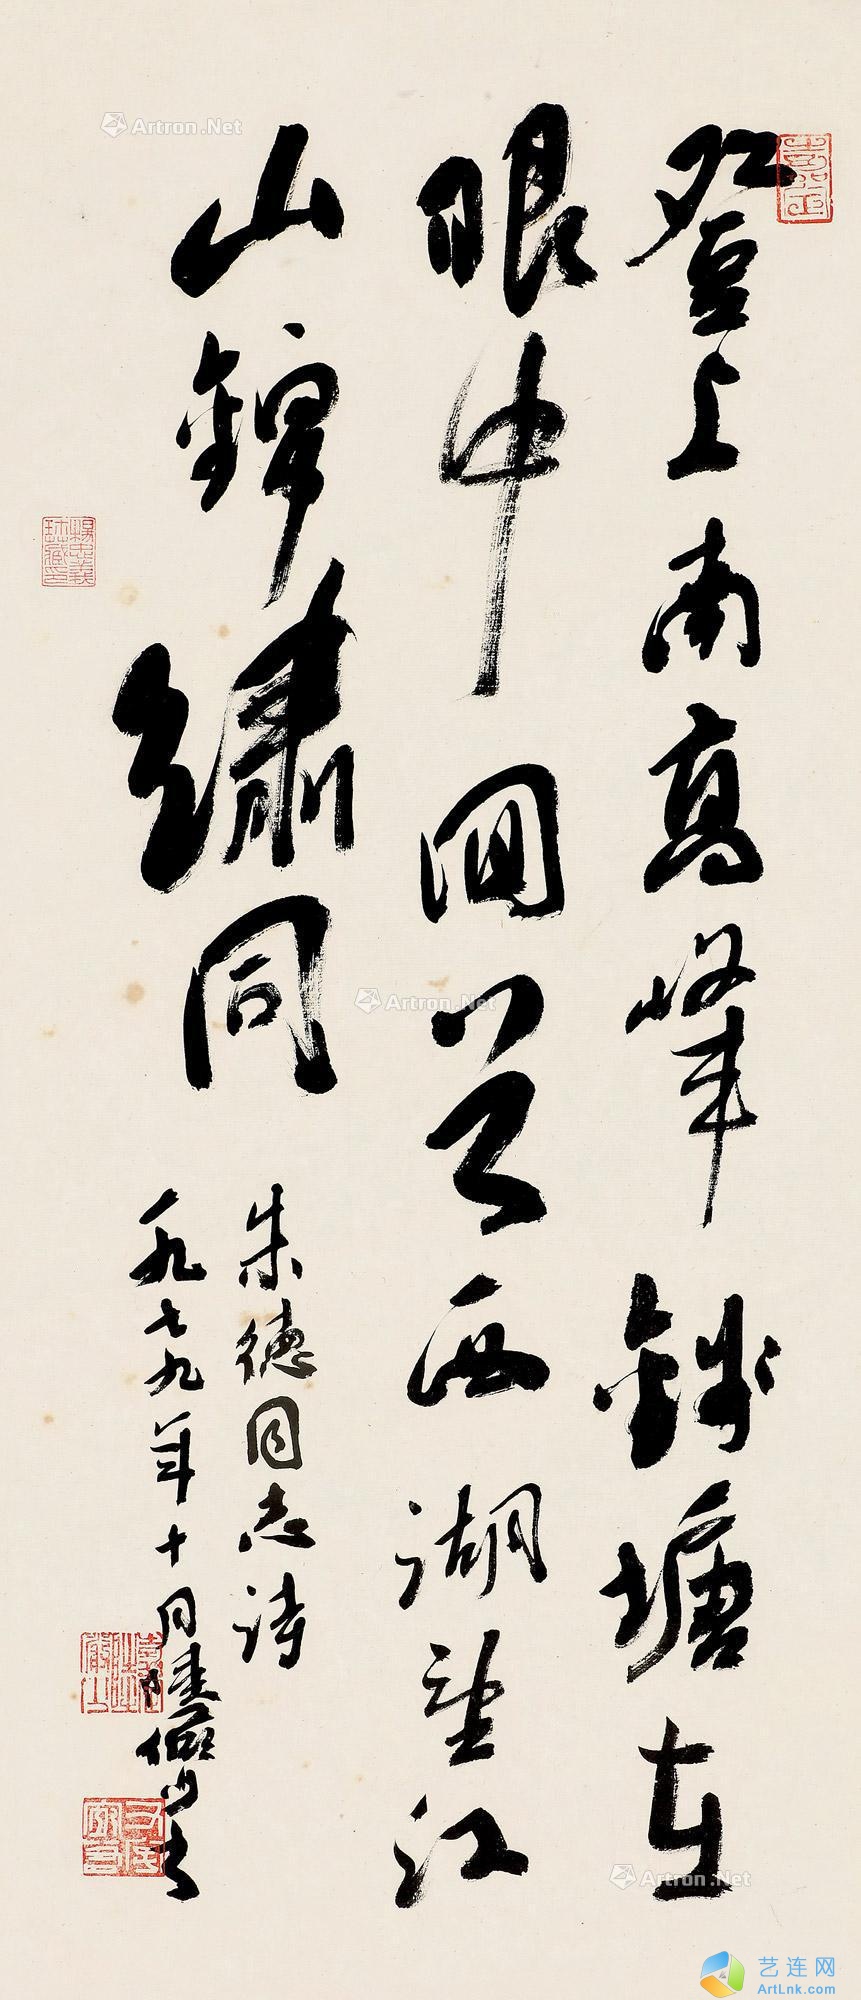 登上南高峰錢塘在
眼中回首西湖望江
山錦繡同
朱德同志詩
一九七九年十月陸儼少書
楊忠義
珎藏印
Artron.Net
Artron.Net
Artron.Net
艺连网
ArtLnk.com